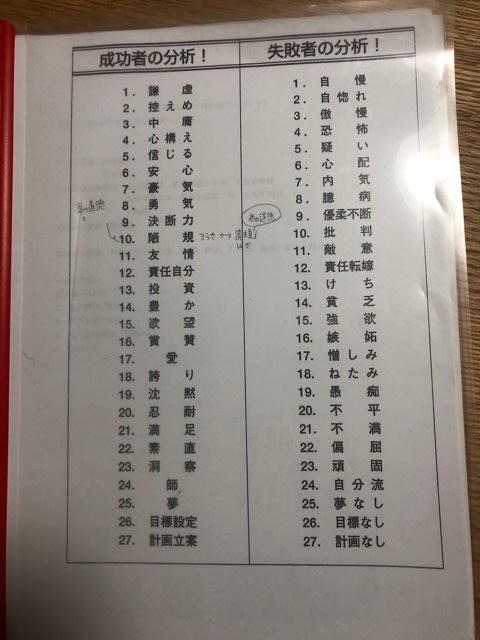 成功者の分析！
1. 謙虚
2. 控えめ
3. 中庸
4. 心構え
5. 信じる
6. 安心
7. 豪気
8. 勇気
9. 決断力
10. 陋規
11. 友情
12. 責任自分
13. 投資
14. 豊か
15. 欲望
16. 賞賛
17. 愛
18. 誇り
19. 沈黙
20. 忍耐
21. 満足
22. 素直
23. 洞察
24. 師
25. 夢
26. 目標設定
27. 計画立案
裏の道徳
ろうき ↔ 清規
せいき
表の道徳
失敗者の分析！
1. 自慢
2. 自惚れ
3. 傲慢
4. 恐怖
5. 疑い
6. 心配
7. 内気
8. 臆病
9. 優柔不断
10. 批判
11. 敵意
12. 責任転嫁
13. けち
14. 貧乏
15. 強欲
16. 嫉妬
17. 憎しみ
18. ねたみ
19. 愚痴
20. 不平
21. 不満
22. 偏屈
23. 頑固
24. 自分流
25. 夢なし
26. 目標なし
27. 計画なし